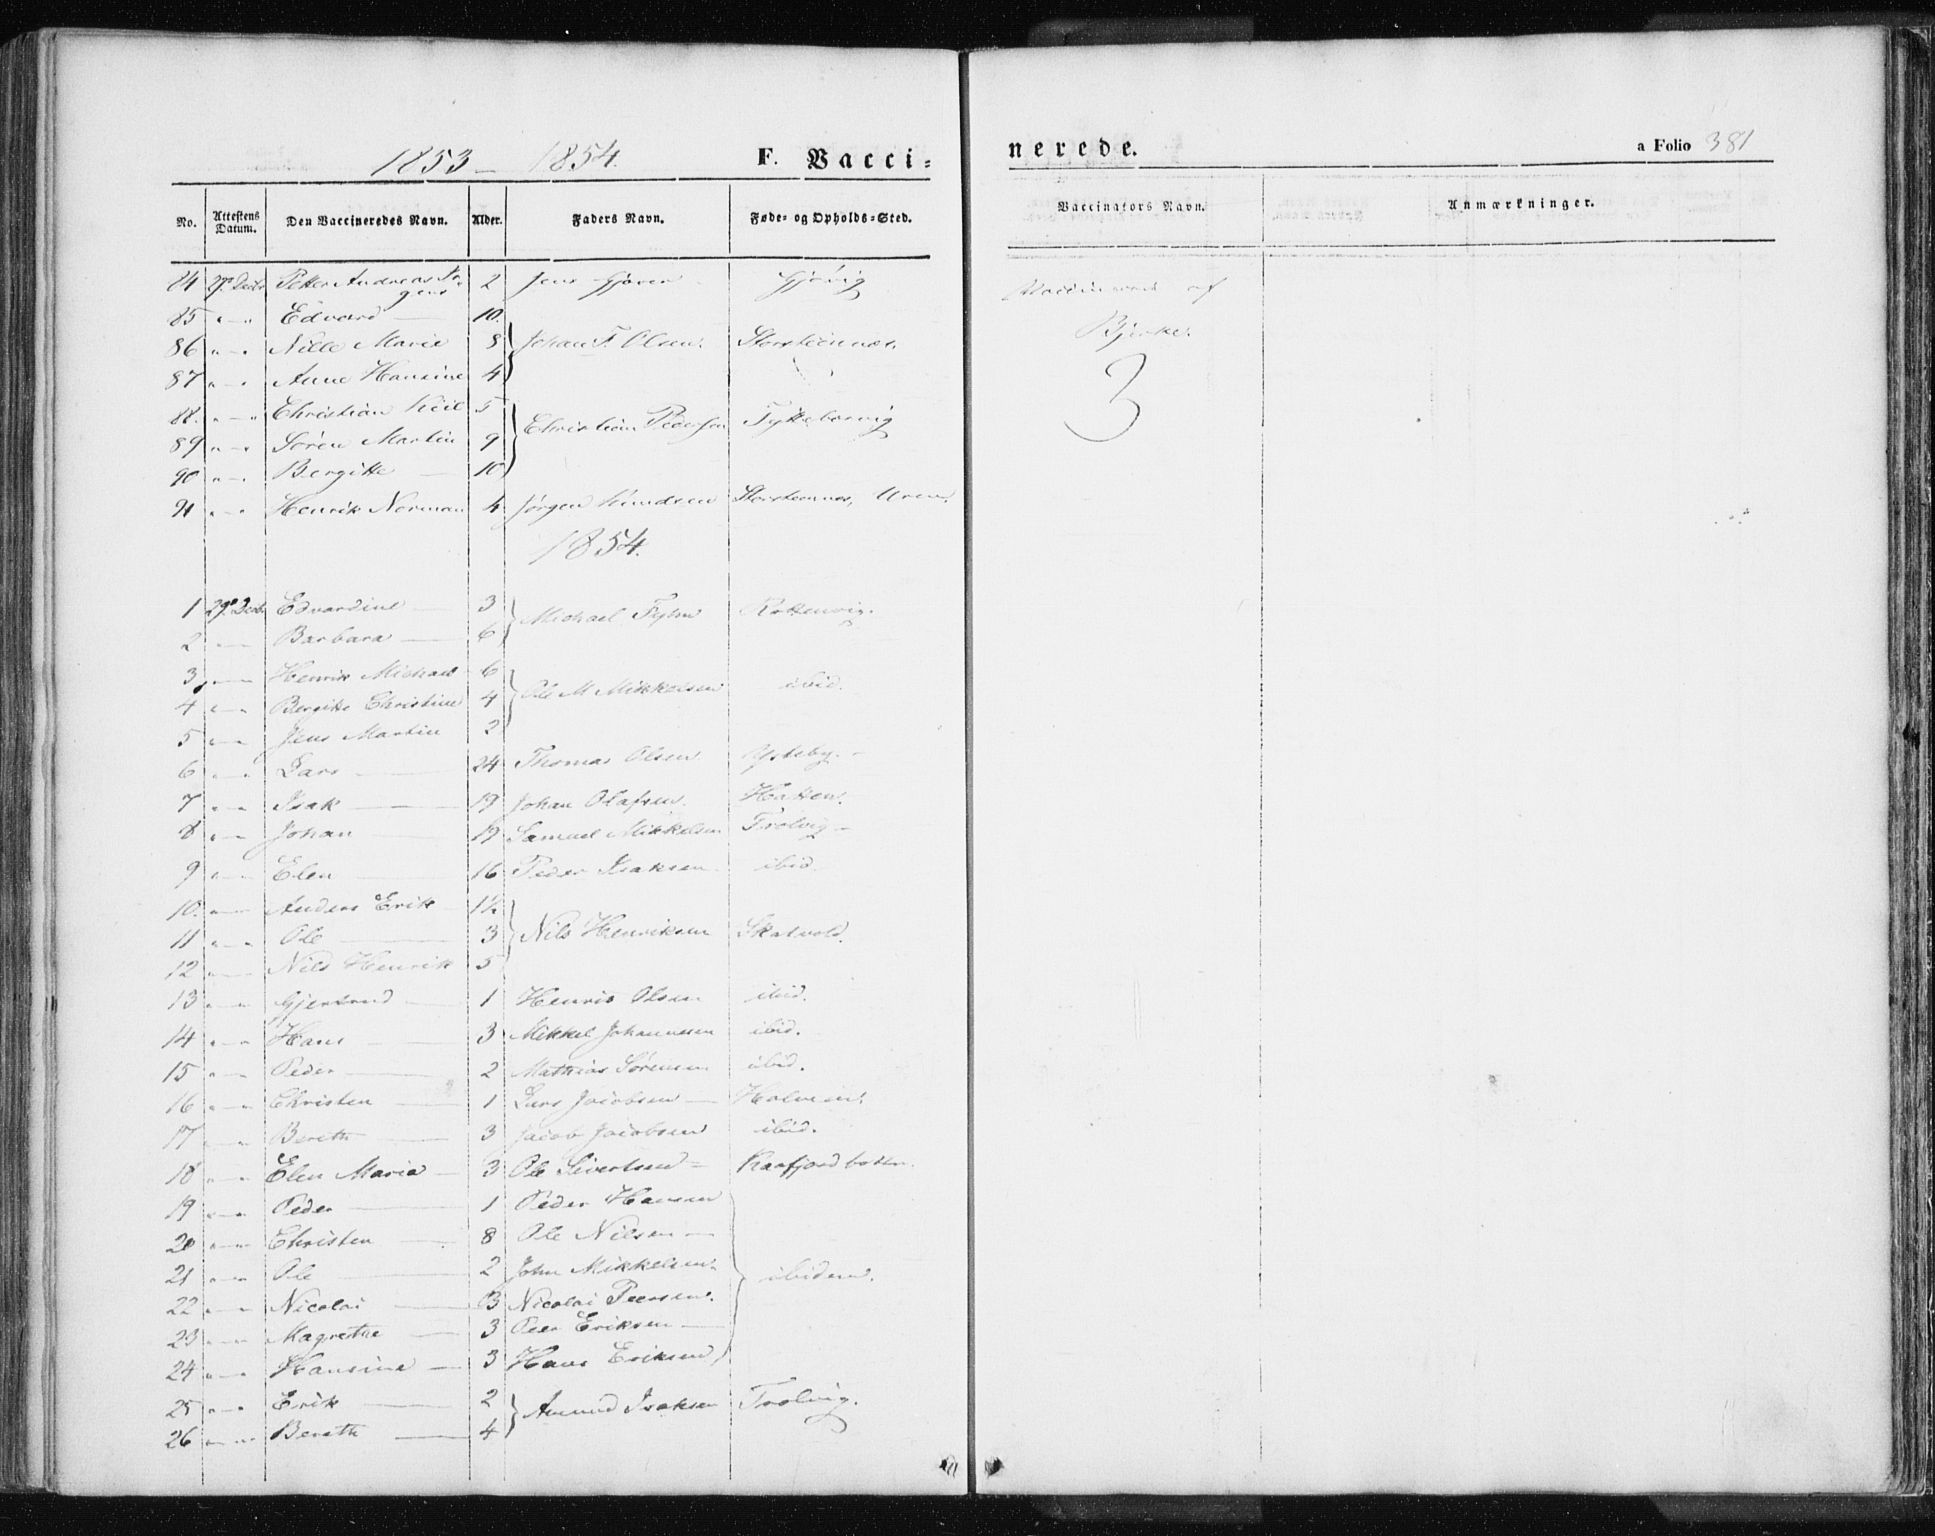 1853 - 1854. F. Vacci-
nerede. a Folio 381
No. Attestens Datum. Den Vaccineredes Navn. Alder. Faders Navn. Føde- og Opholds-Sted. Vaccinators Navn. Anmærkninger.
84 29 Decbr Petter Andreas 2 Jens Gjøvig
85 " — " Edvard — 10.
86 " — " Nille Marie 8 Johan F. Olsen. Storsteennes.
87 " — " Anne Hansine 4
88. " — " Christian Kiil 5
89 " — " Søren Martin 9 Christian Pedersen
90 " — " Bergitte — 10
91 " — " Henrik Norman 4 Jørgen Knudsen Storsteennes,
af
Bjerke.
3
1854.
1 29 Decbr Edvardine — 3 Michael Fyhn Kottenvig.
2 " — " Barbara — 6
3 " — " Henrik Michael 6
4 " — " Bergitte Christine 4 Ole M Mikkelsen ibid.
5 " — " Jens Martin 2
6 " — " Lars — 24 Thomas Olsen Ysteby. -
7 " — " Isak — 19 Johan Olafsen. Hatten.
8 " — " Johan — 19 Samuel Mikkelsen Trolvig -
9 " — " Elen — 16 Peder Isaksen ibid.
10. " — " Anders Erik 1½
11 " — " Ole — 3 Nils Henriksen Skatvold.
12 " — " Nils Henrik 5
13 " — " Gjertrud — 1 Henrik Olsen ibid.
14 " — " Hans — 3 Mikkel Johannesen ibid.
15 " — " Peder — 2 Mathias Sørensen ibid.
16 " — " Christen — 1 Lars Jacobsen — Holmen.
17 " — " Bereth — 3 Jacob Jacobsen ibid.
18 " — " Elen Maria - 3 Ole Sivertsen - Kaafjordbotn.
19 " — " Peder — 1 Peder Hansen
20 " — " Christen — 8 Ole Nilsen —
21 " — " Ole — 2 John Mikkelsen. ibidem.
22 " — " Nicolai — 13 Nicolai Peersen.
23 " — " Magrethe — 3 Peer Eriksen —
24 " — " Hansine — 3 Hans Eriksen
25 " — " Erik — 2 Amund Isaksen Trolvig.
26 " — " Bereth — 4